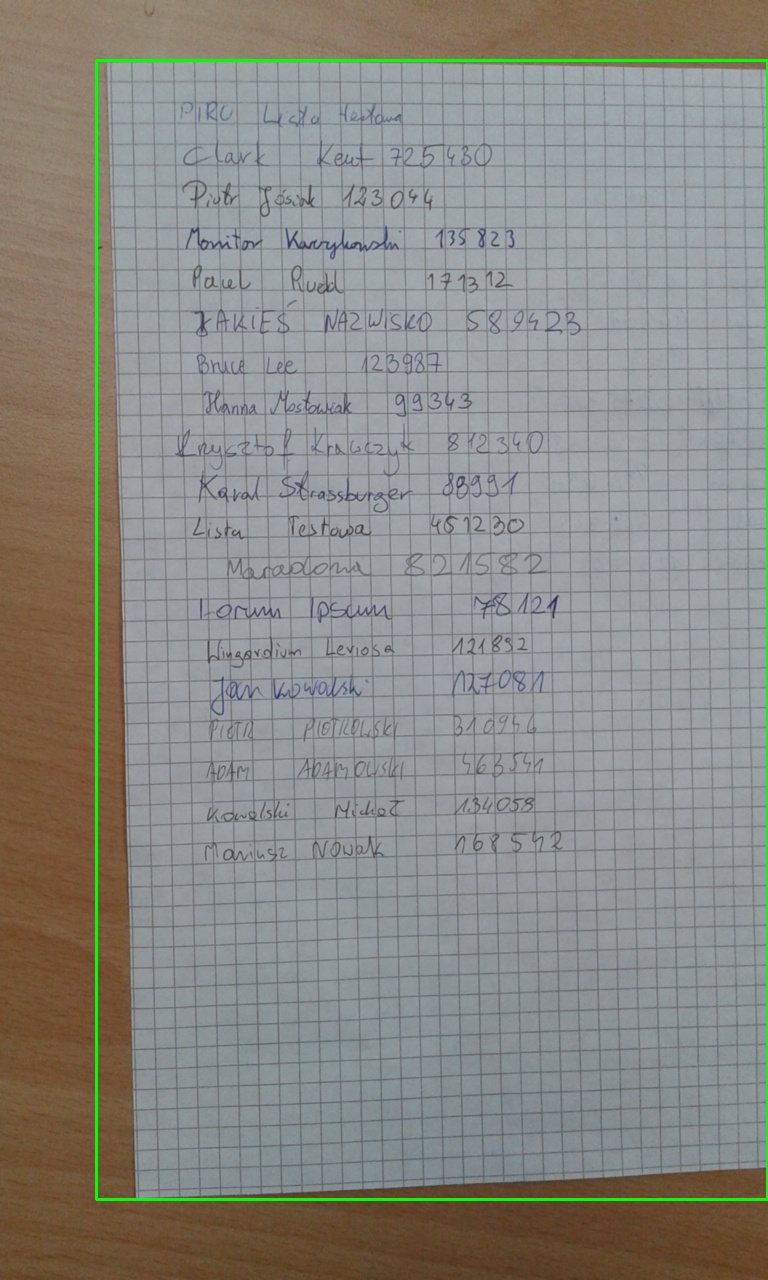 PIRO Lista testowa
Clark Kent 725430
Piotr Jósiak 123044
Monitor 135823
Paweł Rudd 171312
JAKIEŚ NAZWISKO 589423
Bruce Lee 123987
Hanna Mostowiak 99343
Krzysztof Krawczyk 812340
Karol Strassburger 88991
Lista Testowa 451230
Maradona 821582
Lorum Ipsum 78121
Wingardium Leviosa 121892
Jan Kowalski 127081
PIOTR PIOTROWSKI 310946
ADAM ADAMOWSKI 463541
Kowalski Michał 134058
Mariusz Nowak 168542